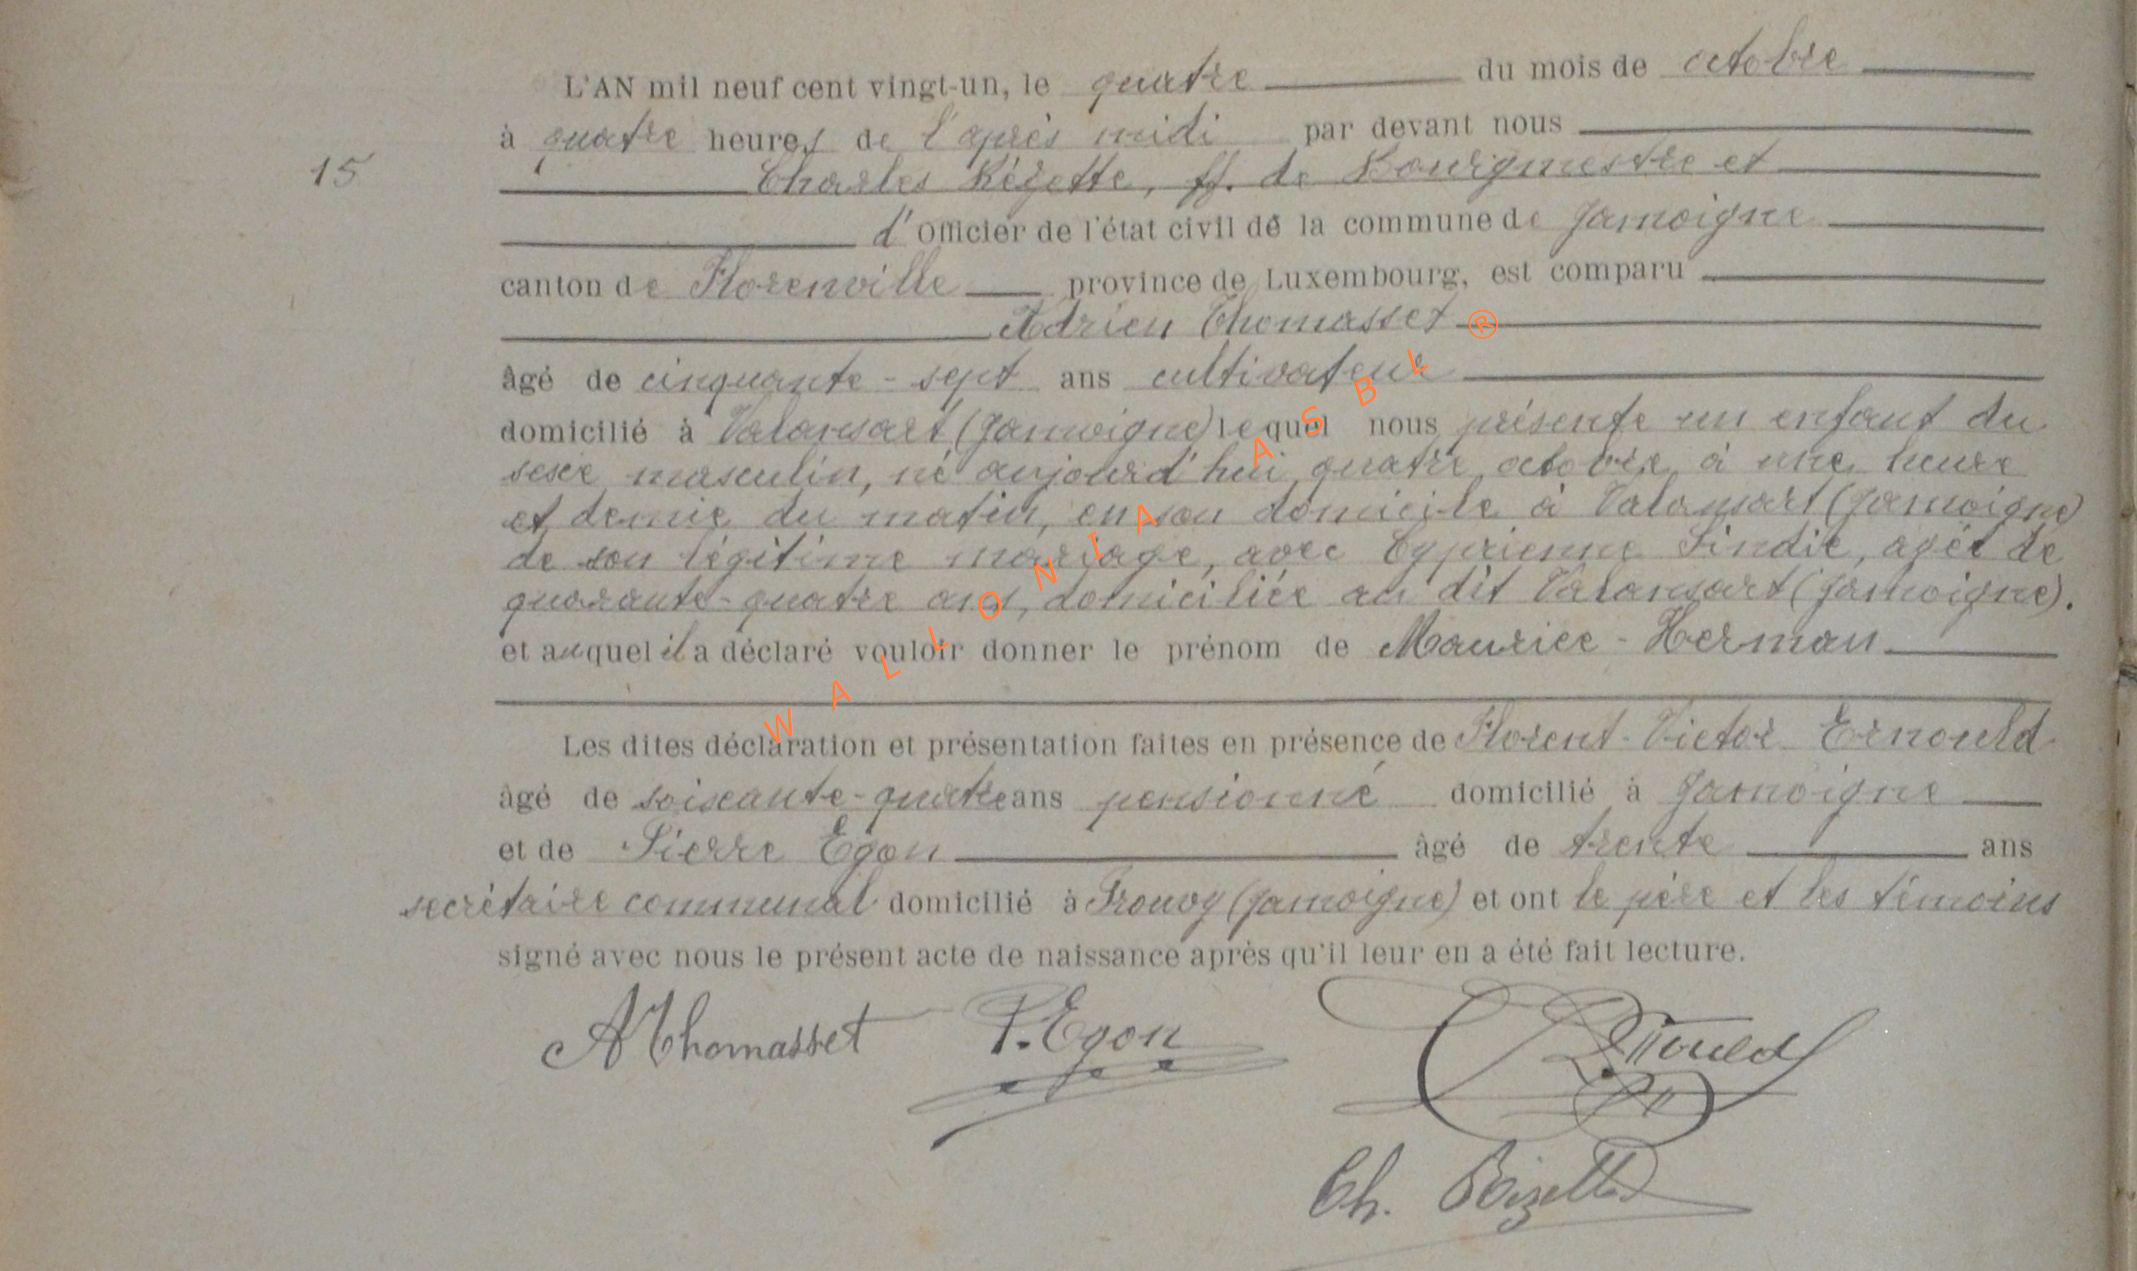 L'AN mil neuf cent vingt-un, le quatre du mois de octobre
à quatre heures de l'après midi par devant nous
15
Charles Rézette, ff. de Bourgmestre et
d'Officier de l'état civil de la commune de Jamoigne
canton de Florenville province de Luxembourg, est comparu
Adrien Thomasset
âgé de cinquante-sept ans cultivateur
domicilié à Valansart (Jamoigne) lequel nous présente un enfant du
sexe masculin, né aujourd'hui quatre octobre à une heure
et demie du matin, en son domicile à Valansart (Jamoigne)
de son légitime mariage, avec Cyprienne Sindic, agée de
quarante-quatre ans, domiciliée au dit Valansart (Jamoigne).
et auquel il a déclaré vouloir donner le prénom de Maurice-Herman
Les dites déclaration et présentation faites en présence de Florent-Victor Ernould
âgé de soixante-quatre ans pensionné domicilié à Jamoigne
et de Pierre Egon âgé de trente ans
secrétaire communal domicilié à Prouvy (Jamoigne) et ont le père et les témoins
signé avec nous le présent acte de naissance après qu'il leur en a été fait lecture.
AThomasset P. Egon Ernould
Ch. Rézette
WALLONIA ASBL ®